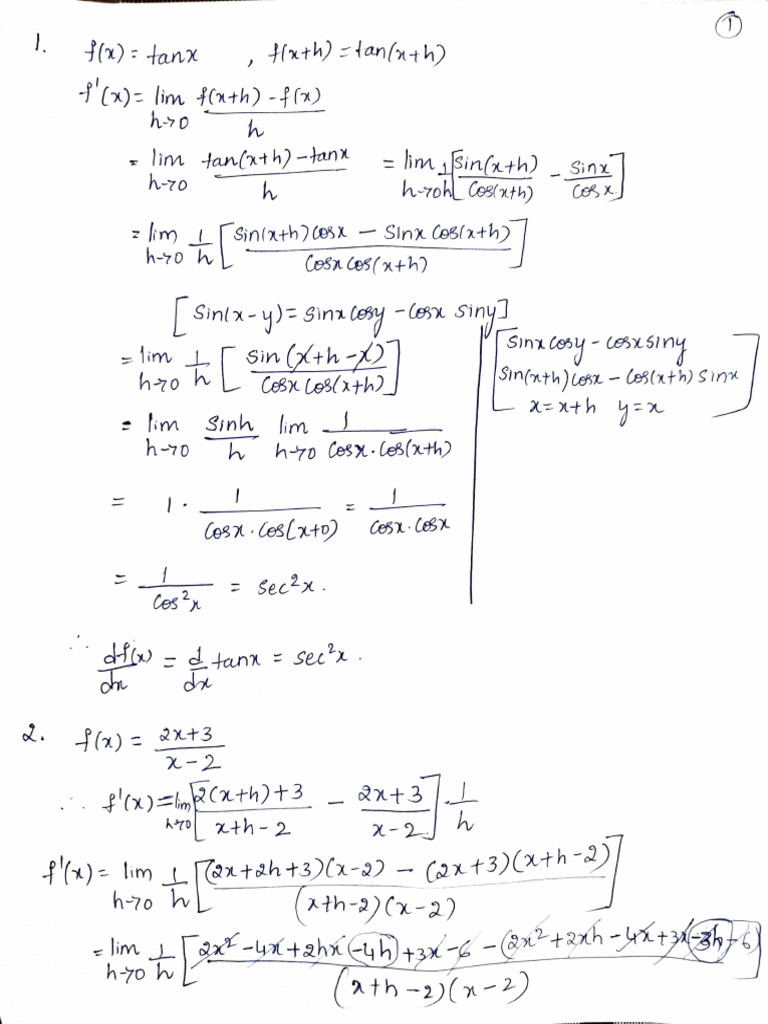 ①
1. f(x) = tanx , f(x+h) = tan(x+h)
f'(x) = lim h→0 (f(x+h) - f(x))/h
= lim h→0 (tan(x+h) - tanx)/h = lim h→0 1/h [sin(x+h)/cos(x+h) - sinx/cosx]
= lim h→0 1/h [(sin(x+h) cosx - sinx cos(x+h))/(cosx cos(x+h))]
[sin(x-y) = sinx cosy - cosx siny]
= lim h→0 1/h [sin(x+h-x)/(cosx cos(x+h))]
= lim h→0 sinh/h lim h→0 1/(cosx · cos(x+h))
= 1 · 1/(cosx · cos(x+0)) = 1/(cosx · cosx)
= 1/cos²x = sec²x.
[sinx cosy - cosx siny
sin(x+h) cosx - cos(x+h) sinx
x = x+h y = x]
∴ df(x)/dx = d/dx tanx = sec²x.
2. f(x) = (2x+3)/(x-2)
∴ f'(x) = lim h→0 [(2(x+h)+3)/(x+h-2) - (2x+3)/(x-2)] 1/h
f'(x) = lim h→0 1/h [((2x+2h+3)(x-2) - (2x+3)(x+h-2))/((x+h-2)(x-2))]
= lim h→0 1/h [(2x²-4x+2hx-4h+3x-6-(2x²+2xh-4x+3x-3h-6))/((x+h-2)(x-2))]